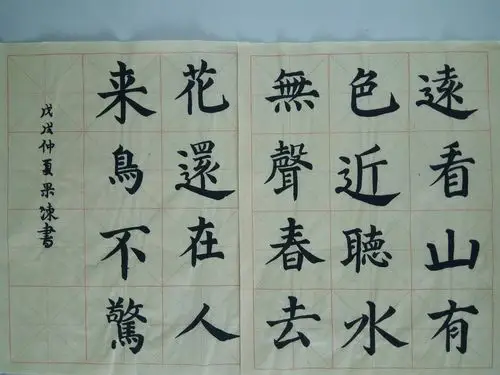 遠看山有
色近聽水
無聲春去
花還在人
来鳥不驚
戊戌仲夏果陳書